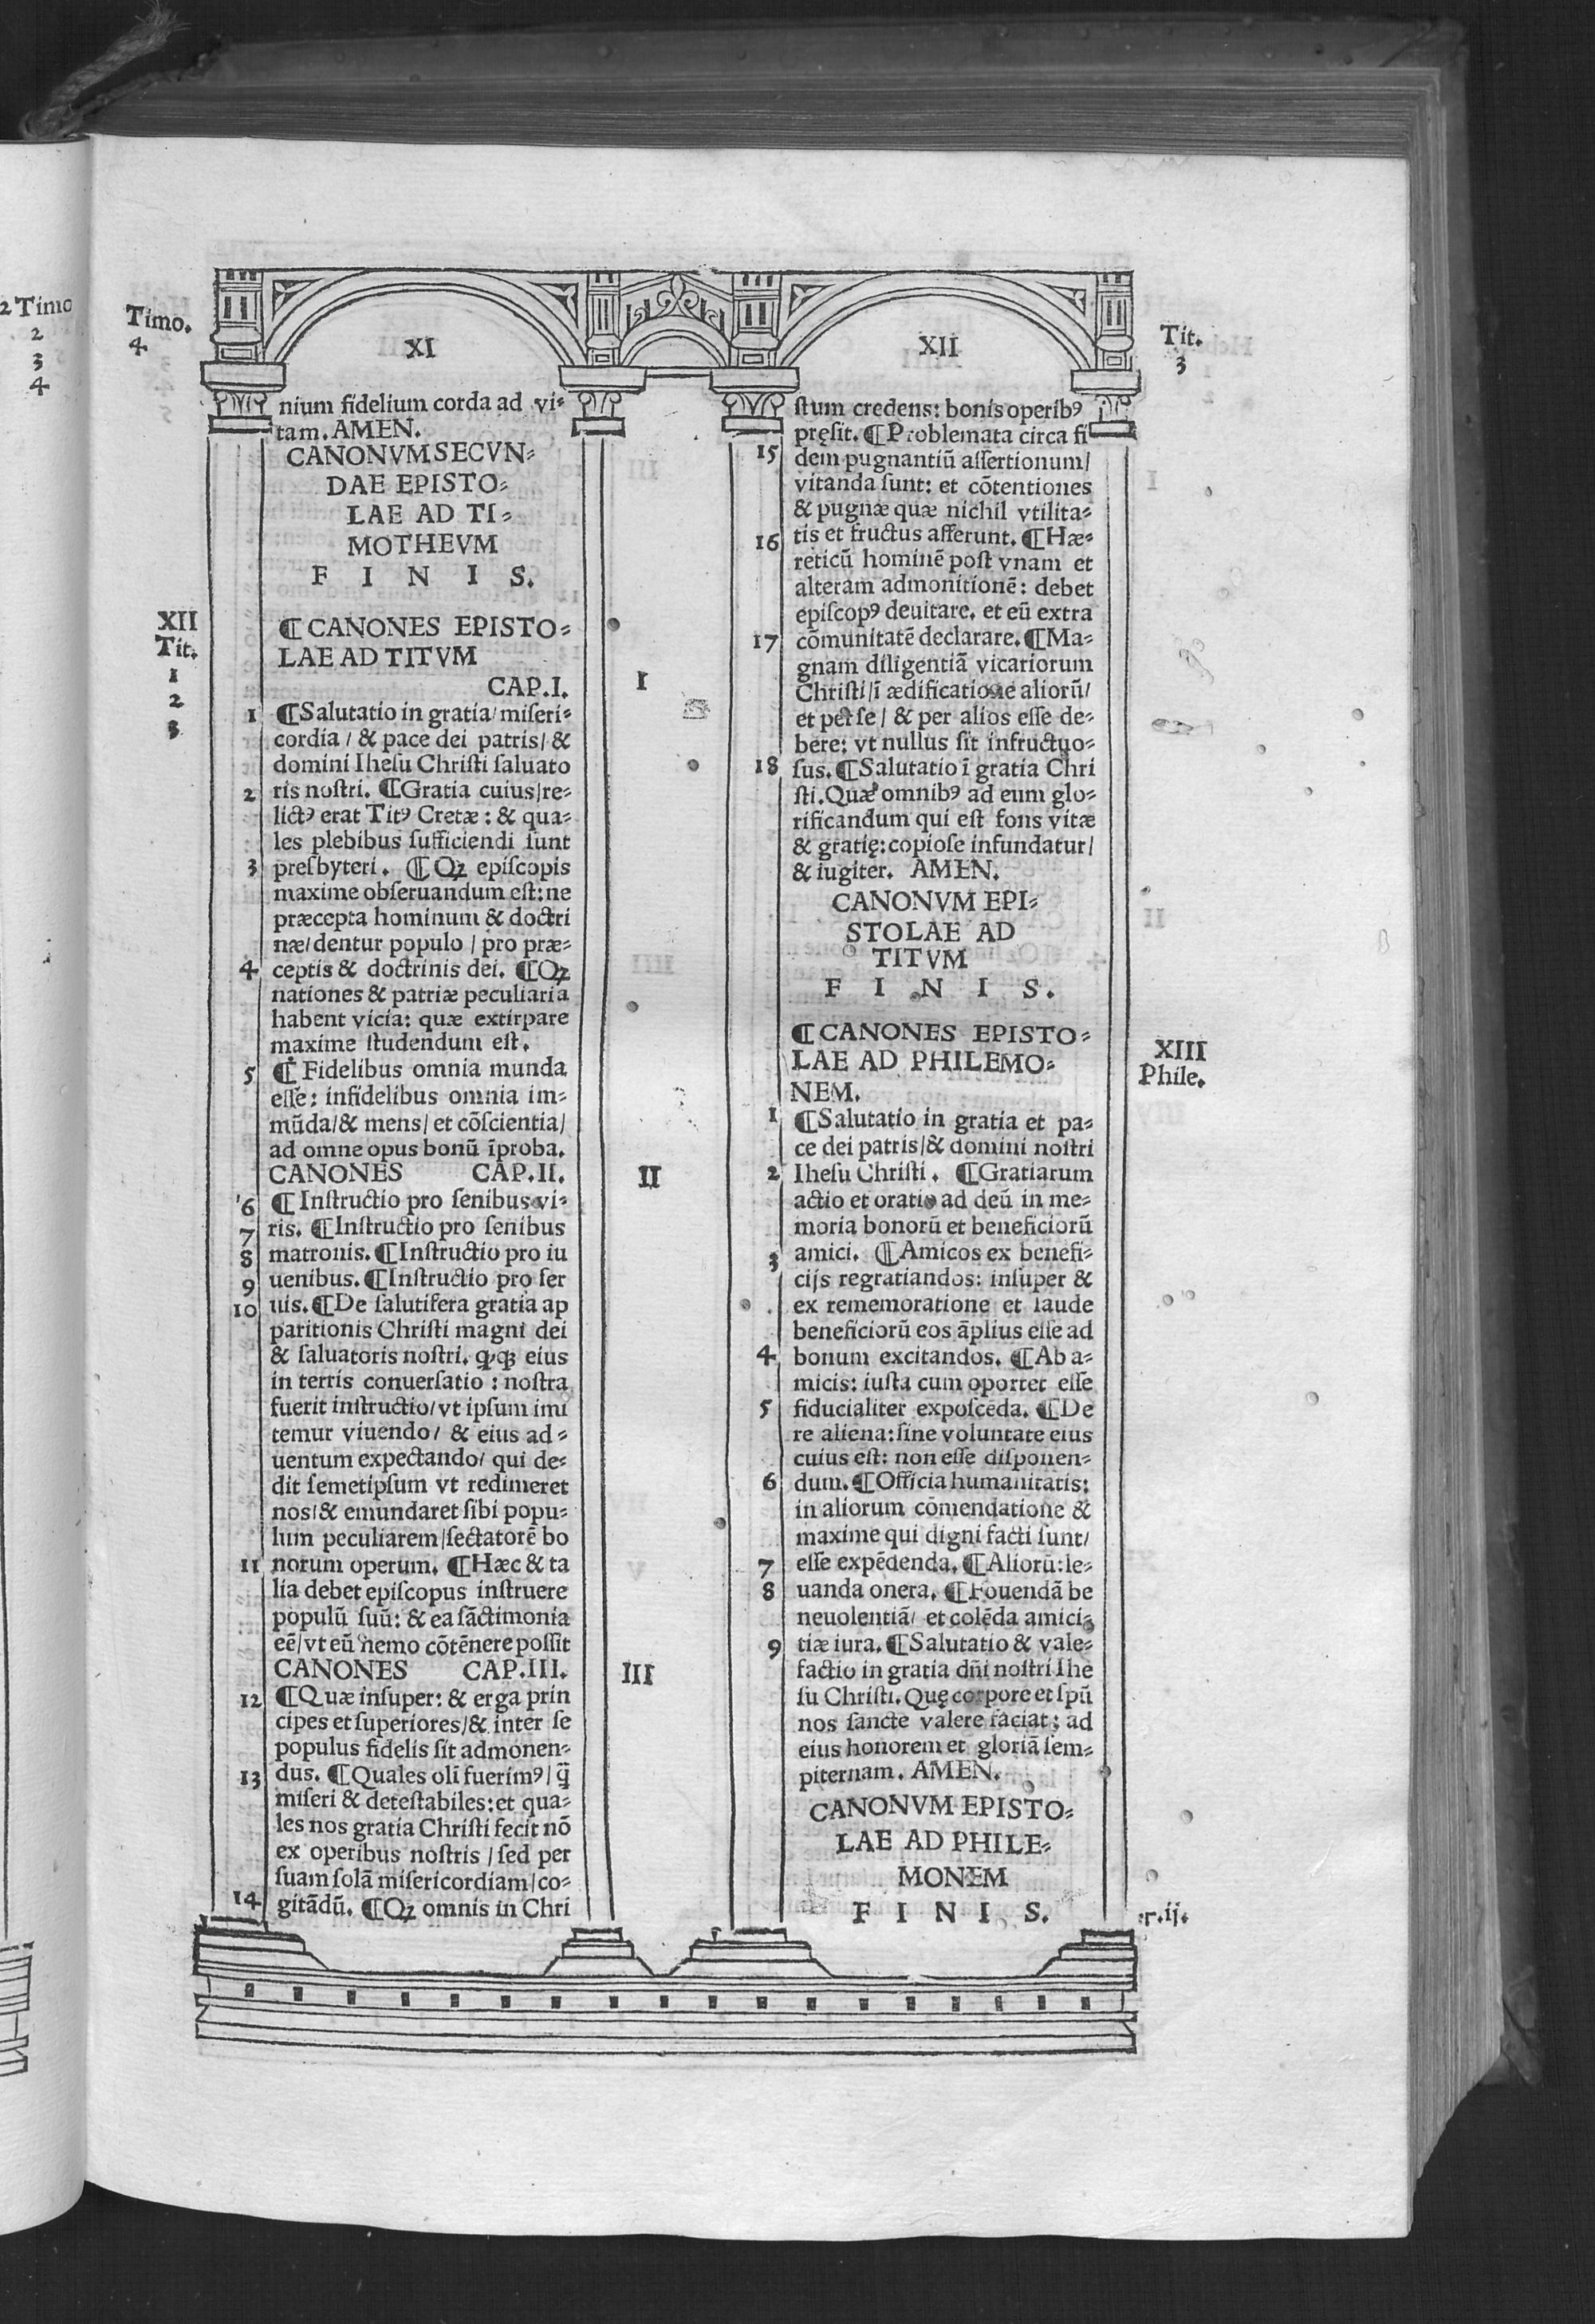 2 Timo
2
3
4
Timo.
4
XI
nium fidelium corda ad vi⸗
tam. AMEN.
CANONVM SECVN⸗
DAE EPISTO⸗
LAE AD TI⸗
MOTHEVM
F I N I S.
XII
Tit.
1
2
3
¶ CANONES EPISTO⸗
LAE AD TITVM
CAP.I.
I
1 ¶Salutatio in gratia/ miſeri⸗
cordia / & pace dei patris/ &
domini Iheſu Chriſti ſaluato
2 ris noſtri. ¶Gratia cuius/re⸗
lictꝰ erat Titꝰ Cretæ : & qua⸗
les plebibus ſufficiendi ſunt
3 preſbyteri. ¶ Qꝫ epiſcopis
maxime obſeruandum eſt: ne
præcepta hominum & doctri
næ/ dentur populo / pro præ⸗
4 ceptis & doctrinis dei. ¶Qꝫ
nationes & patriæ peculiaria
habent vicia: quæ extirpare
maxime ſtudendum eſt.
5 ¶ Fidelibus omnia munda
eſſe: infidelibus omnia im⸗
mūda/& mens/ et cōſcientia/
ad omne opus bonū īproba.
CANONES CAP.II.
II
6 ¶ Inſtructio pro ſenibus vi⸗
7 ris. ¶Inſtructio pro ſenibus
8 matronis. ¶Inſtructio pro iu
9 uenibus. ¶Inſtructio pro ſer
10 uis. ¶De ſalutifera gratia ap
paritionis Chriſti magni dei
& ſaluatoris noſtri. ꝙꝗꝫ eius
in terris conuerſatio : noſtra
fuerit inſtructio/ vt ipſum imi
temur viuendo/ & eius ad⸗
uentum expectando/ qui de⸗
dit ſemetipſum vt redimeret
nos/& emundaret ſibi popu⸗
lum peculiarem/ſectatorē bo
11 norum operum. ¶Hæc & ta
lia debet epiſcopus inſtruere
populū ſuū: & ea ſāctimonia
eē/vt eū nemo cōtēnere poſſit
CANONES CAP.III.
III
12 ¶Quæ inſuper: & erga prin
cipes et ſuperiores/& inter ſe
populus fidelis ſit admonen⸗
13 dus. ¶Quales olī fuerimꝰ/ q̄
miſeri & deteſtabiles: et qua⸗
les nos gratia Chriſti fecit nō
ex operibus noſtris / ſed per
ſuam ſolā miſericordiam/co⸗
14 gitādū. ¶Qꝫ omnis in Chri
XII
Tit.
3
ſtum credens: bonis operibꝰ
pręſit. ¶Problemata circa fi
15 dem pugnantiū aſſertionum/
vitanda ſunt: et cōtentiones
& pugnæ quæ nichil vtilita⸗
16 tis et fructus afferunt. ¶Hæ⸗
reticū hominē poſt vnam et
alteram admonitionē: debet
epiſcopꝰ deuitare. et eū extra
17 cōmunitatē declarare. ¶Ma⸗
gnam diligentiā vicariorum
Chriſti/ī ædificatione aliorū/
et per ſe/ & per alios eſſe de⸗
bere: vt nullus ſit infructuo⸗
18 ſus. ¶Salutatio ī gratia Chri
ſti. Quæ omnibꝰ ad eum glo⸗
rificandum qui eſt fons vitæ
& gratię: copioſe infundatur/
& iugiter. AMEN.
CANONVM EPI⸗
STOLAE AD
TITVM
F I N I S.
¶ CANONES EPISTO⸗
LAE AD PHILEMO⸗
NEM.
XIII
Phile.
1 ¶Salutatio in gratia et pa⸗
ce dei patris/& domini noſtri
2 Iheſu Chriſti. ¶Gratiarum
actio et oratio ad deū in me⸗
moria bonorū et beneficiorū
3 amici. ¶Amicos ex benefi⸗
cijs regratiandos: inſuper &
ex rememoratione et laude
beneficiorū eos āplius eſſe ad
4 bonum excitandos. ¶Ab a⸗
micis: iuſta cum oportet eſſe
5 fiducialiter expoſcēda. ¶De
re aliena: ſine voluntate eius
cuius eſt: non eſſe diſponen⸗
6 dum. ¶Officia humanitatis:
in aliorum cōmendatione &
maxime qui digni facti ſunt/
7 eſſe expēdenda. ¶Aliorū: le⸗
8 uanda onera. ¶Fouendā be
neuolentiā/ et colēda amici⸗
9 tiæ iura. ¶Salutatio & vale⸗
factio in gratia dn̄i noſtri Ihe
ſu Chriſti. Quę corpore et ſpū
nos ſancte valere faciat: ad
eius honorem et gloriā ſem⸗
piternam. AMEN.
CANONVM EPISTO⸗
LAE AD PHILE⸗
MONEM
F I N I S.
r.ij.